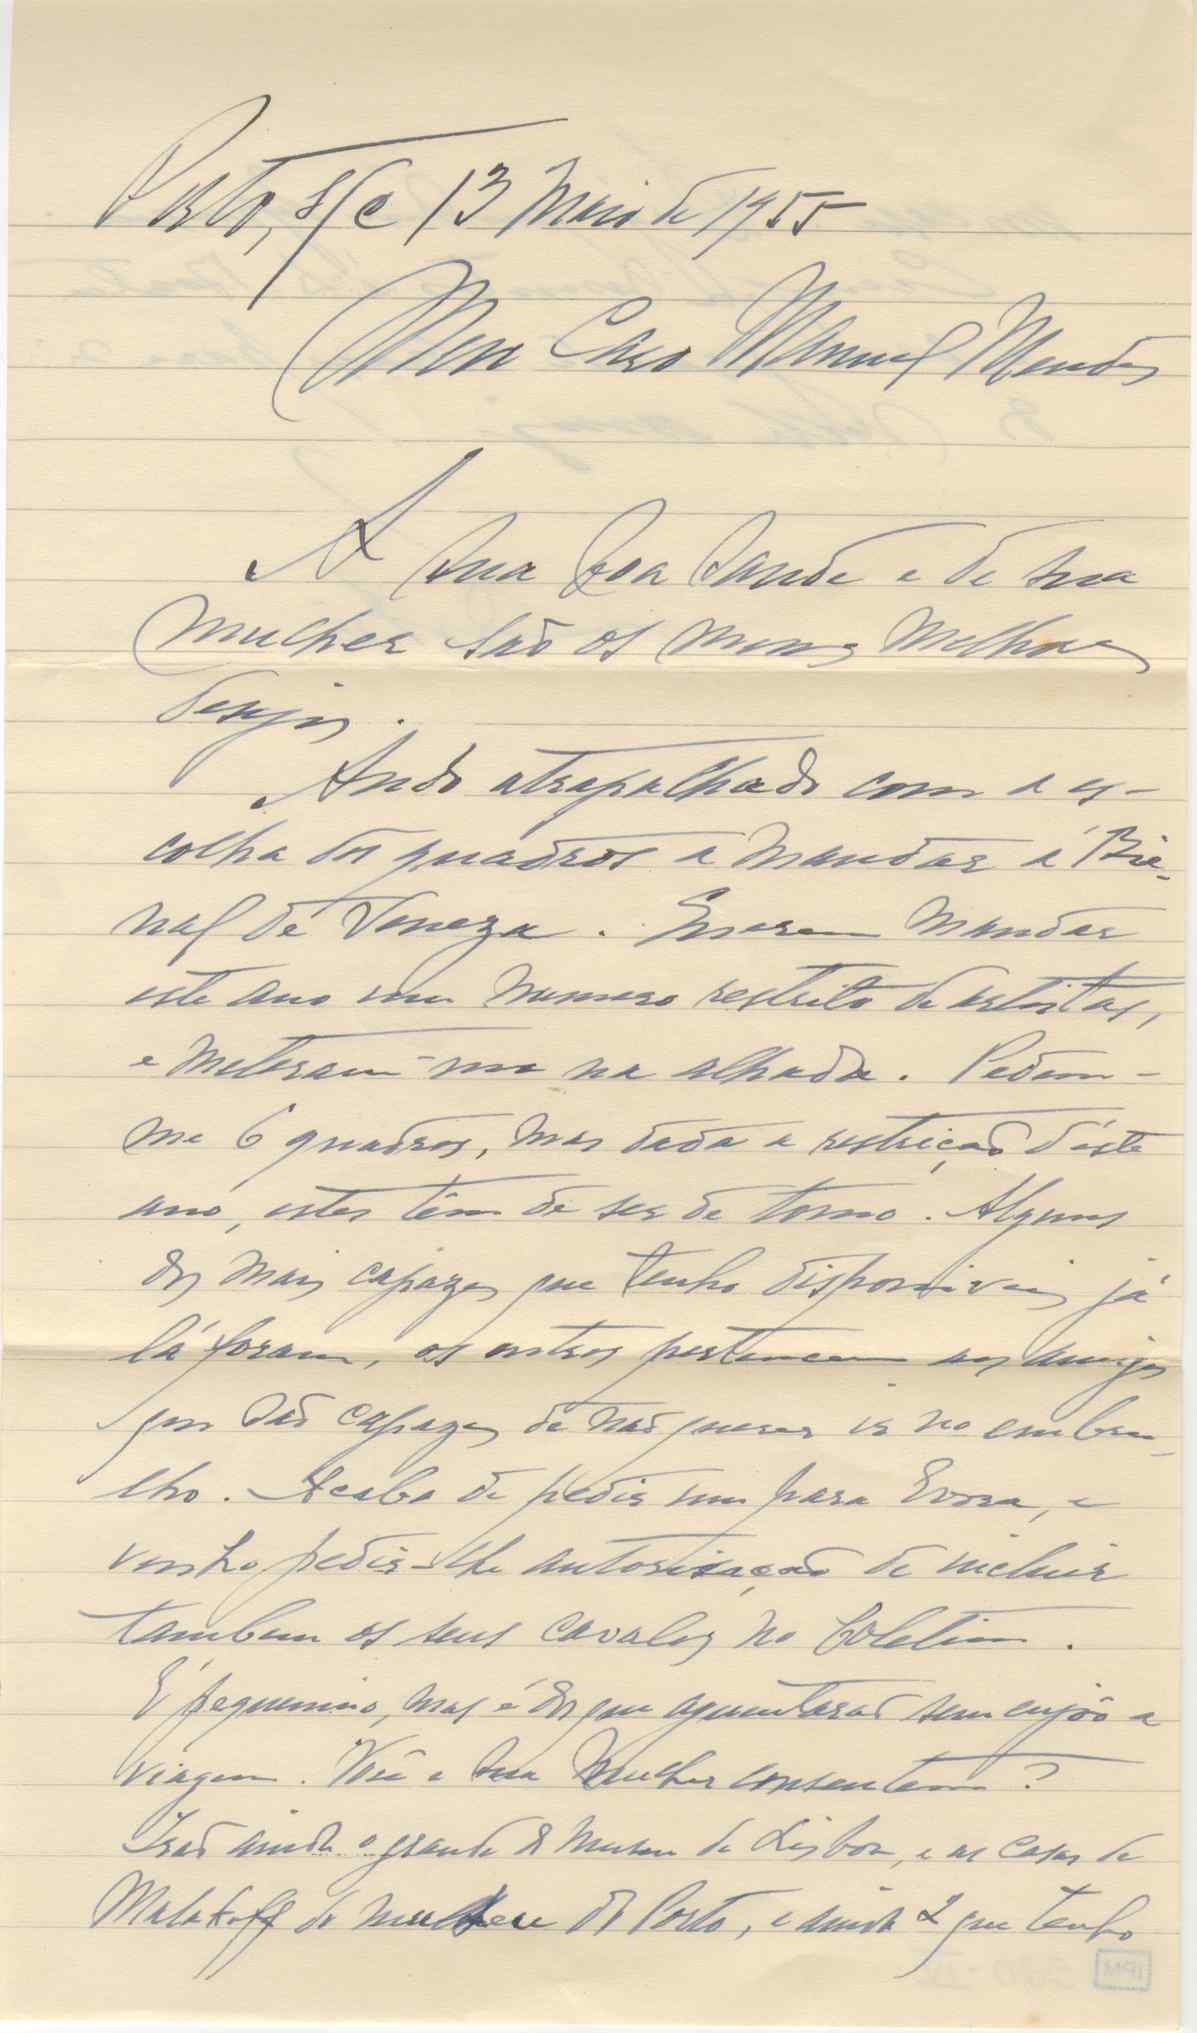 Porto, s/c 13 Maio de 1955
Meu Caro Manuel Mendes
A sua boa saude e de sua
mulher são os meus melhores
desejos.
Ando atrapalhado com a es-
colha dos quadros a mandar á Bie-
nal de Veneza. Querem mandar
este ano um numero restrito de artistas,
e meteram-me na alhada. Pedem-
me 6 quadros, mas dada a restrição d'este
ano, estes têm de ser de tomo. Alguns
dos mais capazes que tenho disponiveis já
lá foram, os outros pertencem aos amigos
que são capazes de não querer ir no embru-
lho. Acabo de pedir um para Evora, e
venho pedir-lhe autorisação de incluir
tambem os seus cavalos no boletim.
É pequenino, mas é dos que aguentarão sem enjôo a
viagem. Você e sua mulher consentem?
Irão ainda o grande do Museu de Lisboa, e as Casas de
Malakoff do museu do Porto, e ainda 2 que tenho
IPM